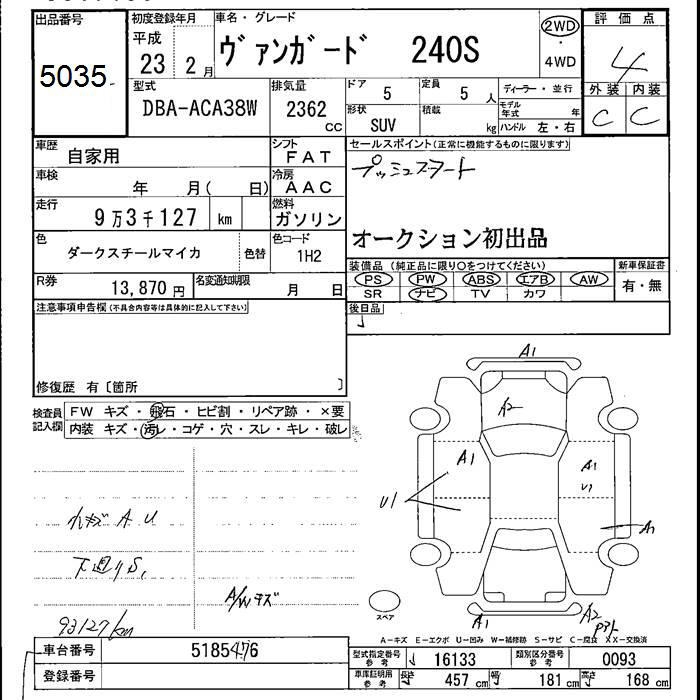 出品番号
5035
初度登録年月
平成
23 2月
車名・グレード
ヴァンガード 240S
2WD
・
4WD
評価点
4
外装 内装
C C
型式
DBA-ACA38W
排気量
2362
cc
ドア 5
定員 5 人
形状 SUV
積載 kg
ディーラー・並行
モデル年式 年
ハンドル 左・右
車歴 自家用
シフト FAT
車検 年 月( 日)
冷房 AAC
走行 9万3千127 km
燃料 ガソリン
色 ダークスチールマイカ 色替
色コード 1H2
R券 13,870 円
名変通知期限 月 日
セールスポイント(正常に機能するものに限ります)
プッシュスタート
オークション初出品
装備品(純正品に限り○をつけてください)
PS PW ABS エアB AW
SR ナビ TV カワ
新車保証書
有・無
後日品
注意事項申告欄(不具合内容等は具体的に記入して下さい)
修復歴 有〔箇所 〕
検査員
記入欄
FW キズ・飛石・ヒビ割・リペア跡・×要
内装 キズ・汚レ・コゲ・穴・スレ・キレ・破レ
小キズ A U
下廻りS,
A/Wキズ
93127km
A1
A2
A1
U1
A1
U1
A1
A1
A2
スペア
A-キズ E-エクボ U-凹み W-補修跡 S-サビ C-腐食 XX-交換済
車台番号 5185476
登録番号
型式指定番号
参考
16133
類別区分番号
参考
0093
車庫証明用
参考
長さ 457 cm
幅 181 cm
高さ 168 cm